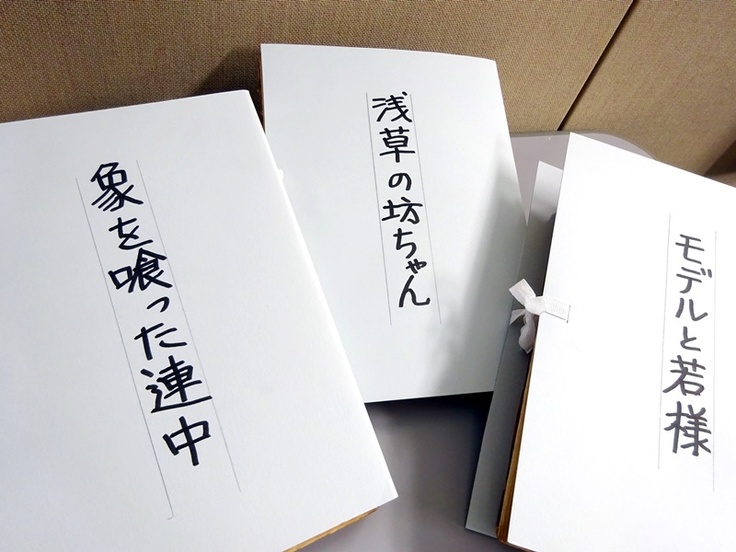 象を喰った連中
浅草の坊ちゃん
モデルと若様